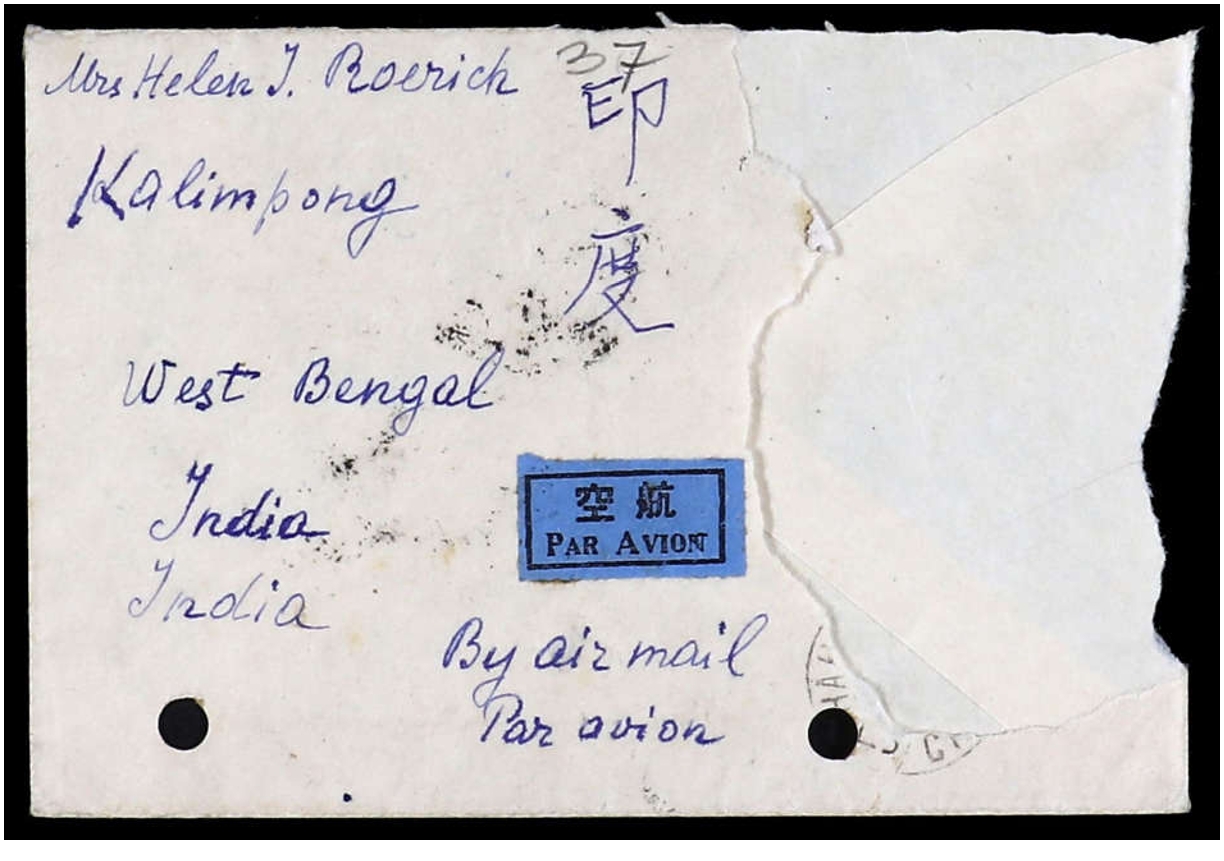 37
Mrs Helen I. Roerich
印度
Kalimpong
West Bengal
India
India
空航
PAR AVION
By air mail
Par avion